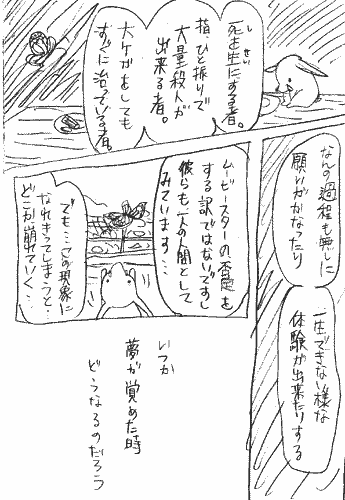 死を生にする者。
しせい
指、ひと振りで
大量殺人が
出来る者。
大ケガをしても
すぐに治っている者。
なんの過程も無しに
願いがかなったり
一生できない様な
体験が出来たりする
ムービースターの否定を
する訳ではないですし
彼らも一人の人間として
みています…
でも…この現象に
なれきってしまうと…
どこか崩れていく…
いつか
夢が覚めた時
どうなるのだろう